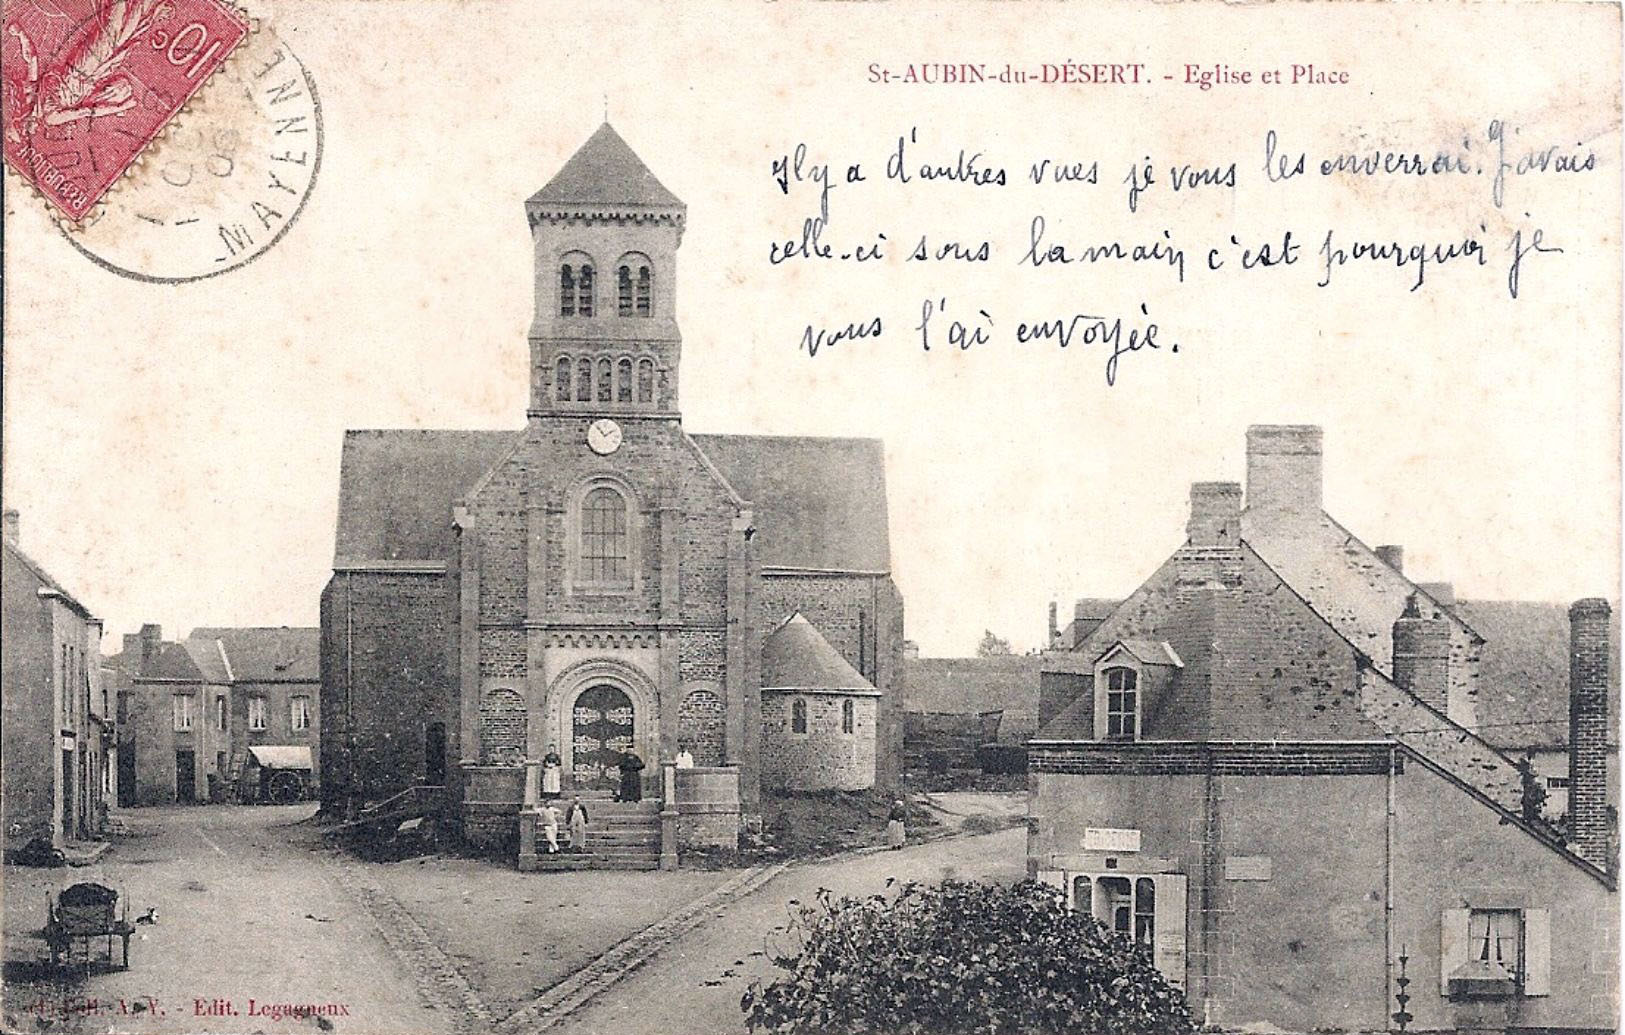 St-AUBIN-du-DÉSERT. - Eglise et Place
Il y a d'autres vues je vous les enverrai. J'avais
celle-ci sous la main c'est pourquoi je
vous l'ai envoyée.
10c
MAYENNE
06
Coll. A. Y. - Edit. Legagneux